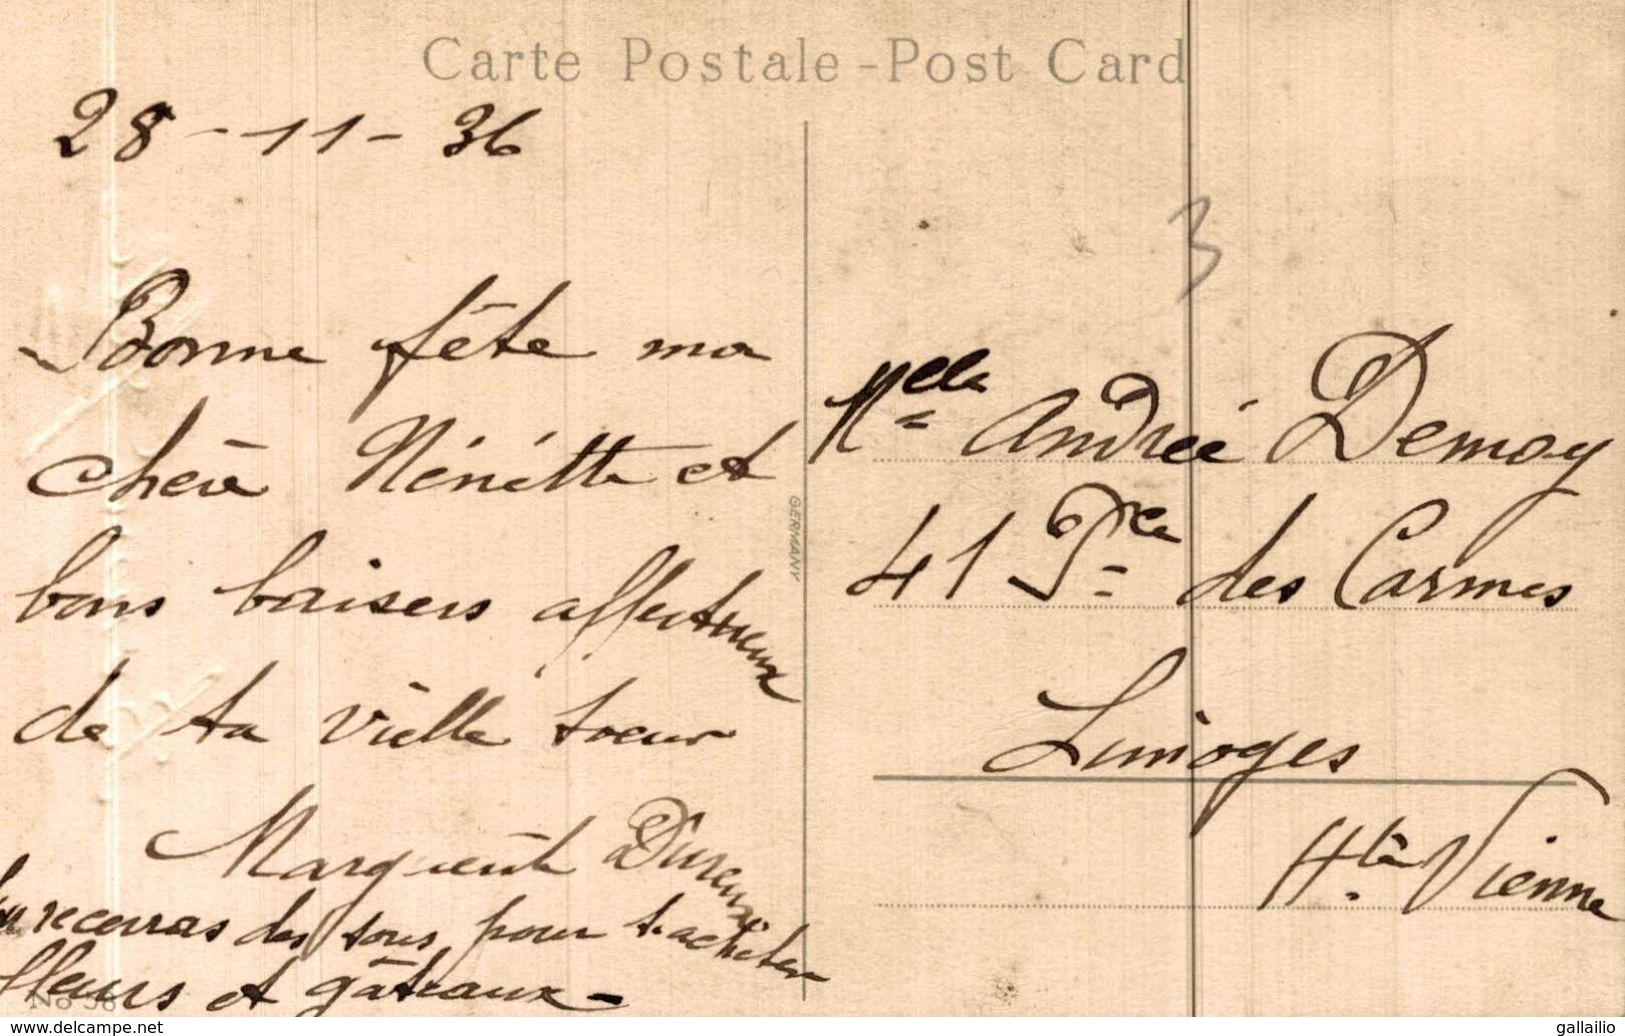 Carte Postale - Post Card
28 - 11 - 36
Bonne fête ma
chère Nénette et
bons baisers affectueux
de ta vielle soeur
Marguerite
Tu recevras des sous pour t'acheter
fleurs et gâteaux -
No 56
GERMANY
3
Melle Andrée Demay
41 Pce des Carmes
Limoges
Hte Vienne
www.delcampe.net
gallailio